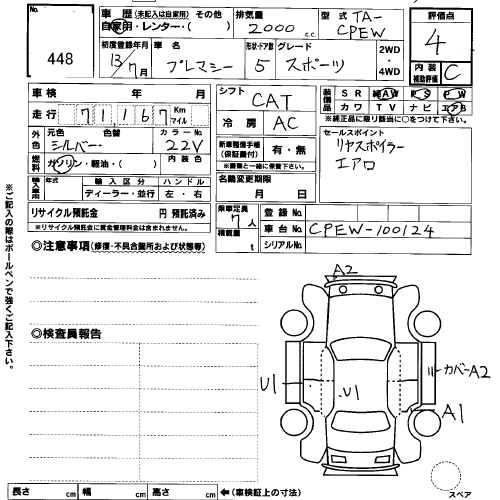 No.
448
車歴 (未記入は自家用) その他
自家用・レンター・( )
排気量
2000 c.c.
型式 TA-
CPEW
評価点
4
内装
補助評価
C
初度登録年月
13/7月
車名
プレマシー
形状・ドア数
5
グレード
スポーツ
2WD
・
4WD
車検 年 月
走行 71167 Km
マイル
シフト
CAT
装備品
SR 純AW PS PW
カワ TV ナビ エアB
※純正品に限り該当に○をつけて下さい。
外色
元色 色替
シルバー
カラーNo.
22V
冷房 AC
燃料
ガソリン・軽油・( )
内装色
新車整備手帳
(保証書付)
有・無
※書類と一緒に保管して下さい。
セールスポイント
リヤスポイラー
エアロ
輸入車用
年式 輸入区分 ハンドル
ディーラー・並行 左・右
名義変更期限
月 日
リサイクル預託金 円 預託済み
※リサイクル預託金に資金管理料金は含まれません。
乗車定員
7人
積載量
t
登録No.
車台No. CPEW-100124
シリアルNo.
◎注意事項 (修復・不具合箇所および状態等)
※ご記入の際はボールペンで強くご記入下さい。
◎検査員報告
A2
カバーA2
U1
U1
A1
スペア
長さ cm 幅 cm 高さ cm ←(車検証上の寸法)